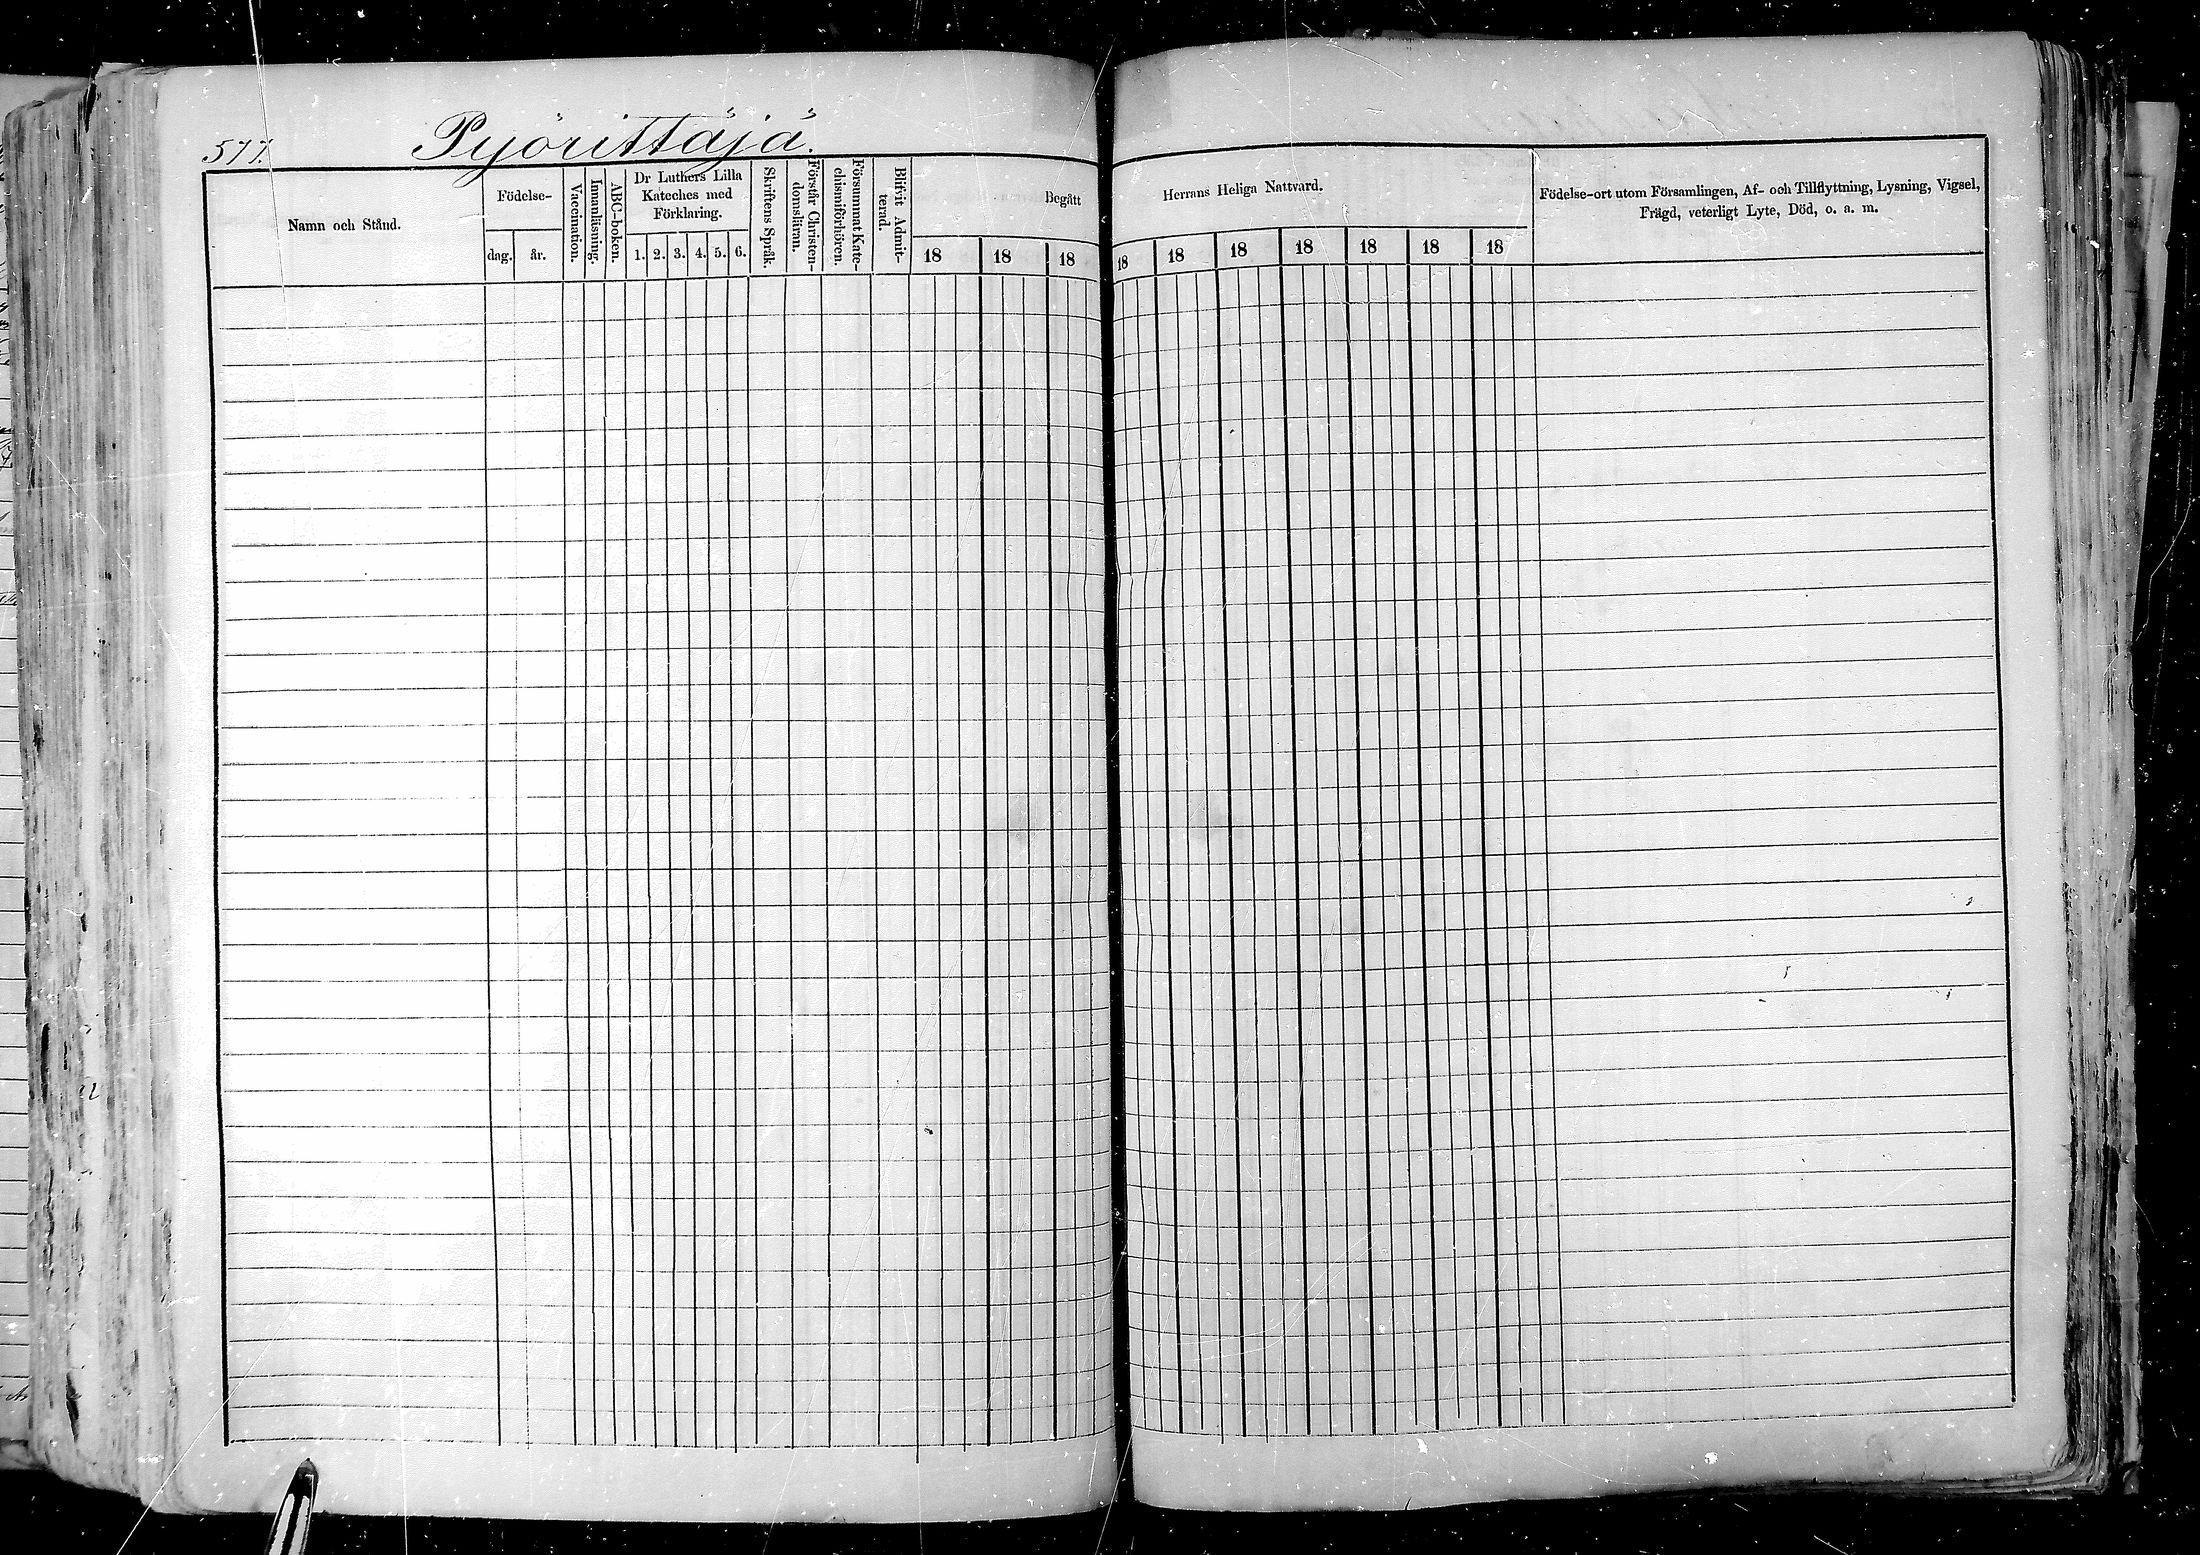 577.
Pyörittäjä.
Namn och Stånd.
Födelse-
dag.
år.
Vaccination.
Innanläsning.
ABC-boken.
Dr Luthers Lilla
Kateches med
Förklaring.
1. 2. 3. 4. 5. 6.
Skriftens Språk.
Förstår Christen-
domsläran.
Försummat Kate-
chismiförhören.
Blifvit Admit-
terad.
Begått
18 18 18
Herrans Heliga Nattvard.
18 18 18 18 18 18 18
Födelse-ort utom Församlingen, Af- och Tillflyttning, Lysning, Vigsel,
Frägd, veterligt Lyte, Död, o. a. m.